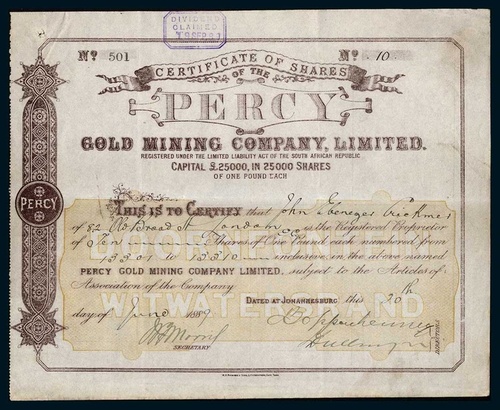 DIVIDEND
CLAIMED
No 501 No 10
CERTIFICATE OF SHARES
OF THE
PERCY
GOLD MINING COMPANY, LIMITED.
REGISTERED UNDER THE LIMITED LIABILITY ACT OF THE SOUTH AFRICAN REPUBLIC
CAPITAL £25000, IN 25000 SHARES
OF ONE POUND EACH
PERCY
THIS IS TO CERTIFY that John Ebenezer
of 82 Old Broad St London is the Registered Proprietor
of Ten Shares of One Pound each numbered from
13301 to 13310 inclusive in the above named
PERCY GOLD MINING COMPANY LIMITED, subject to the Articles of
Association of the Company
WITWATERSRAND
DATED AT JOHANNESBURG this 20th
day of June 1889
SECRETARY
DIRECTORS